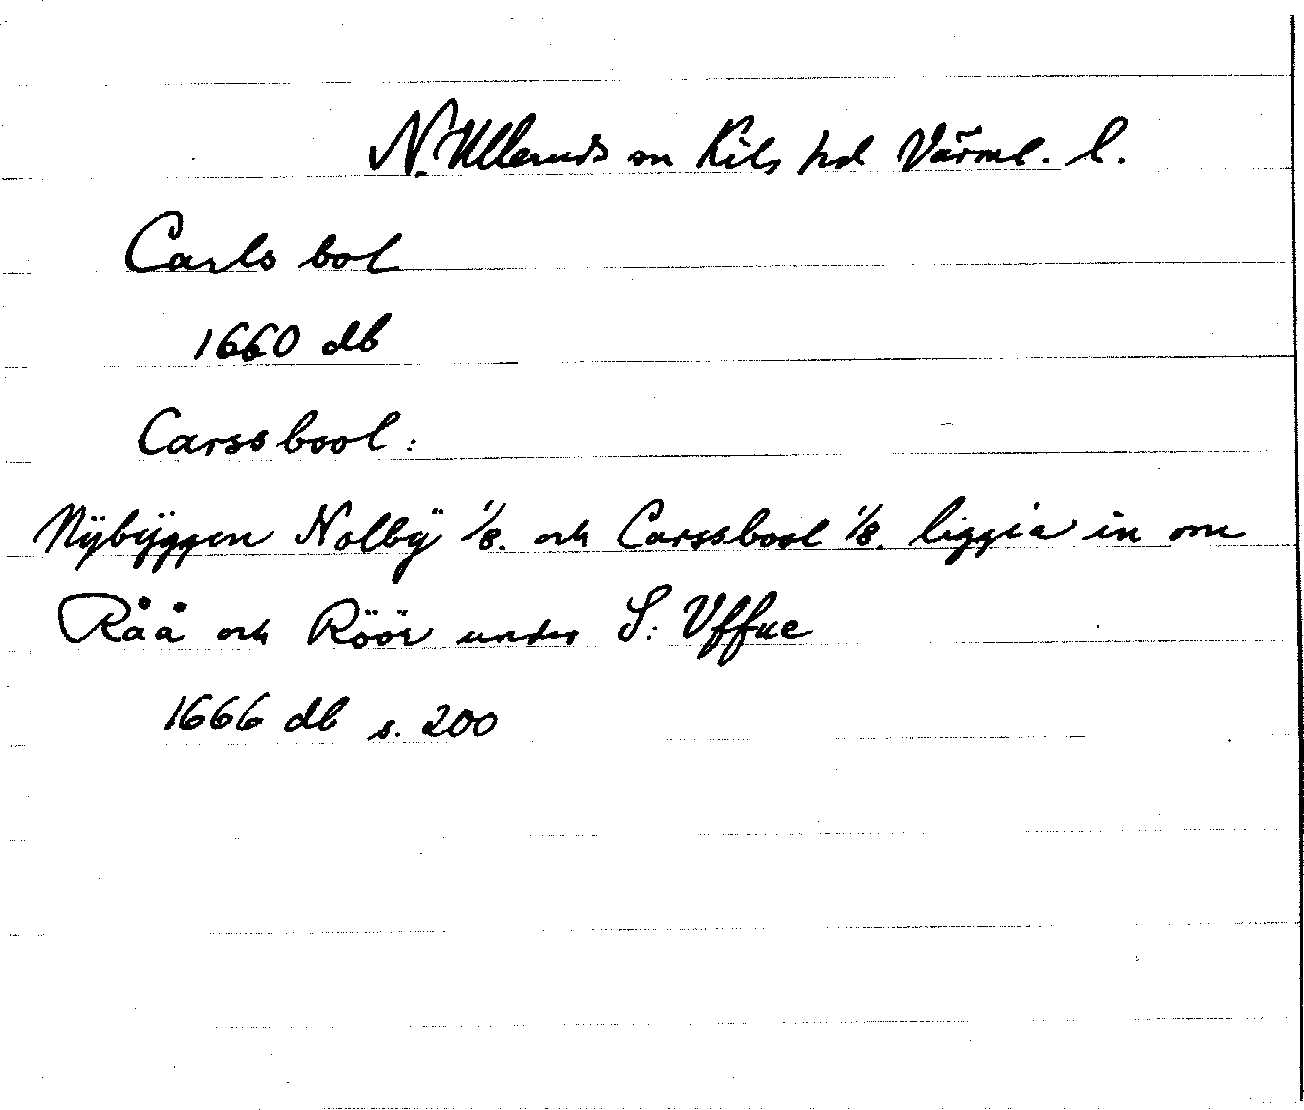 N. Ulleruds sn Kils hd Värml. l.
Carls bol
1660 db
Carssbool:
Nÿbÿggen Nolbÿ 1/8. och Carssbool 1/8. liggia in om
Råå och Röör under S: Vffue
1666 db s. 200